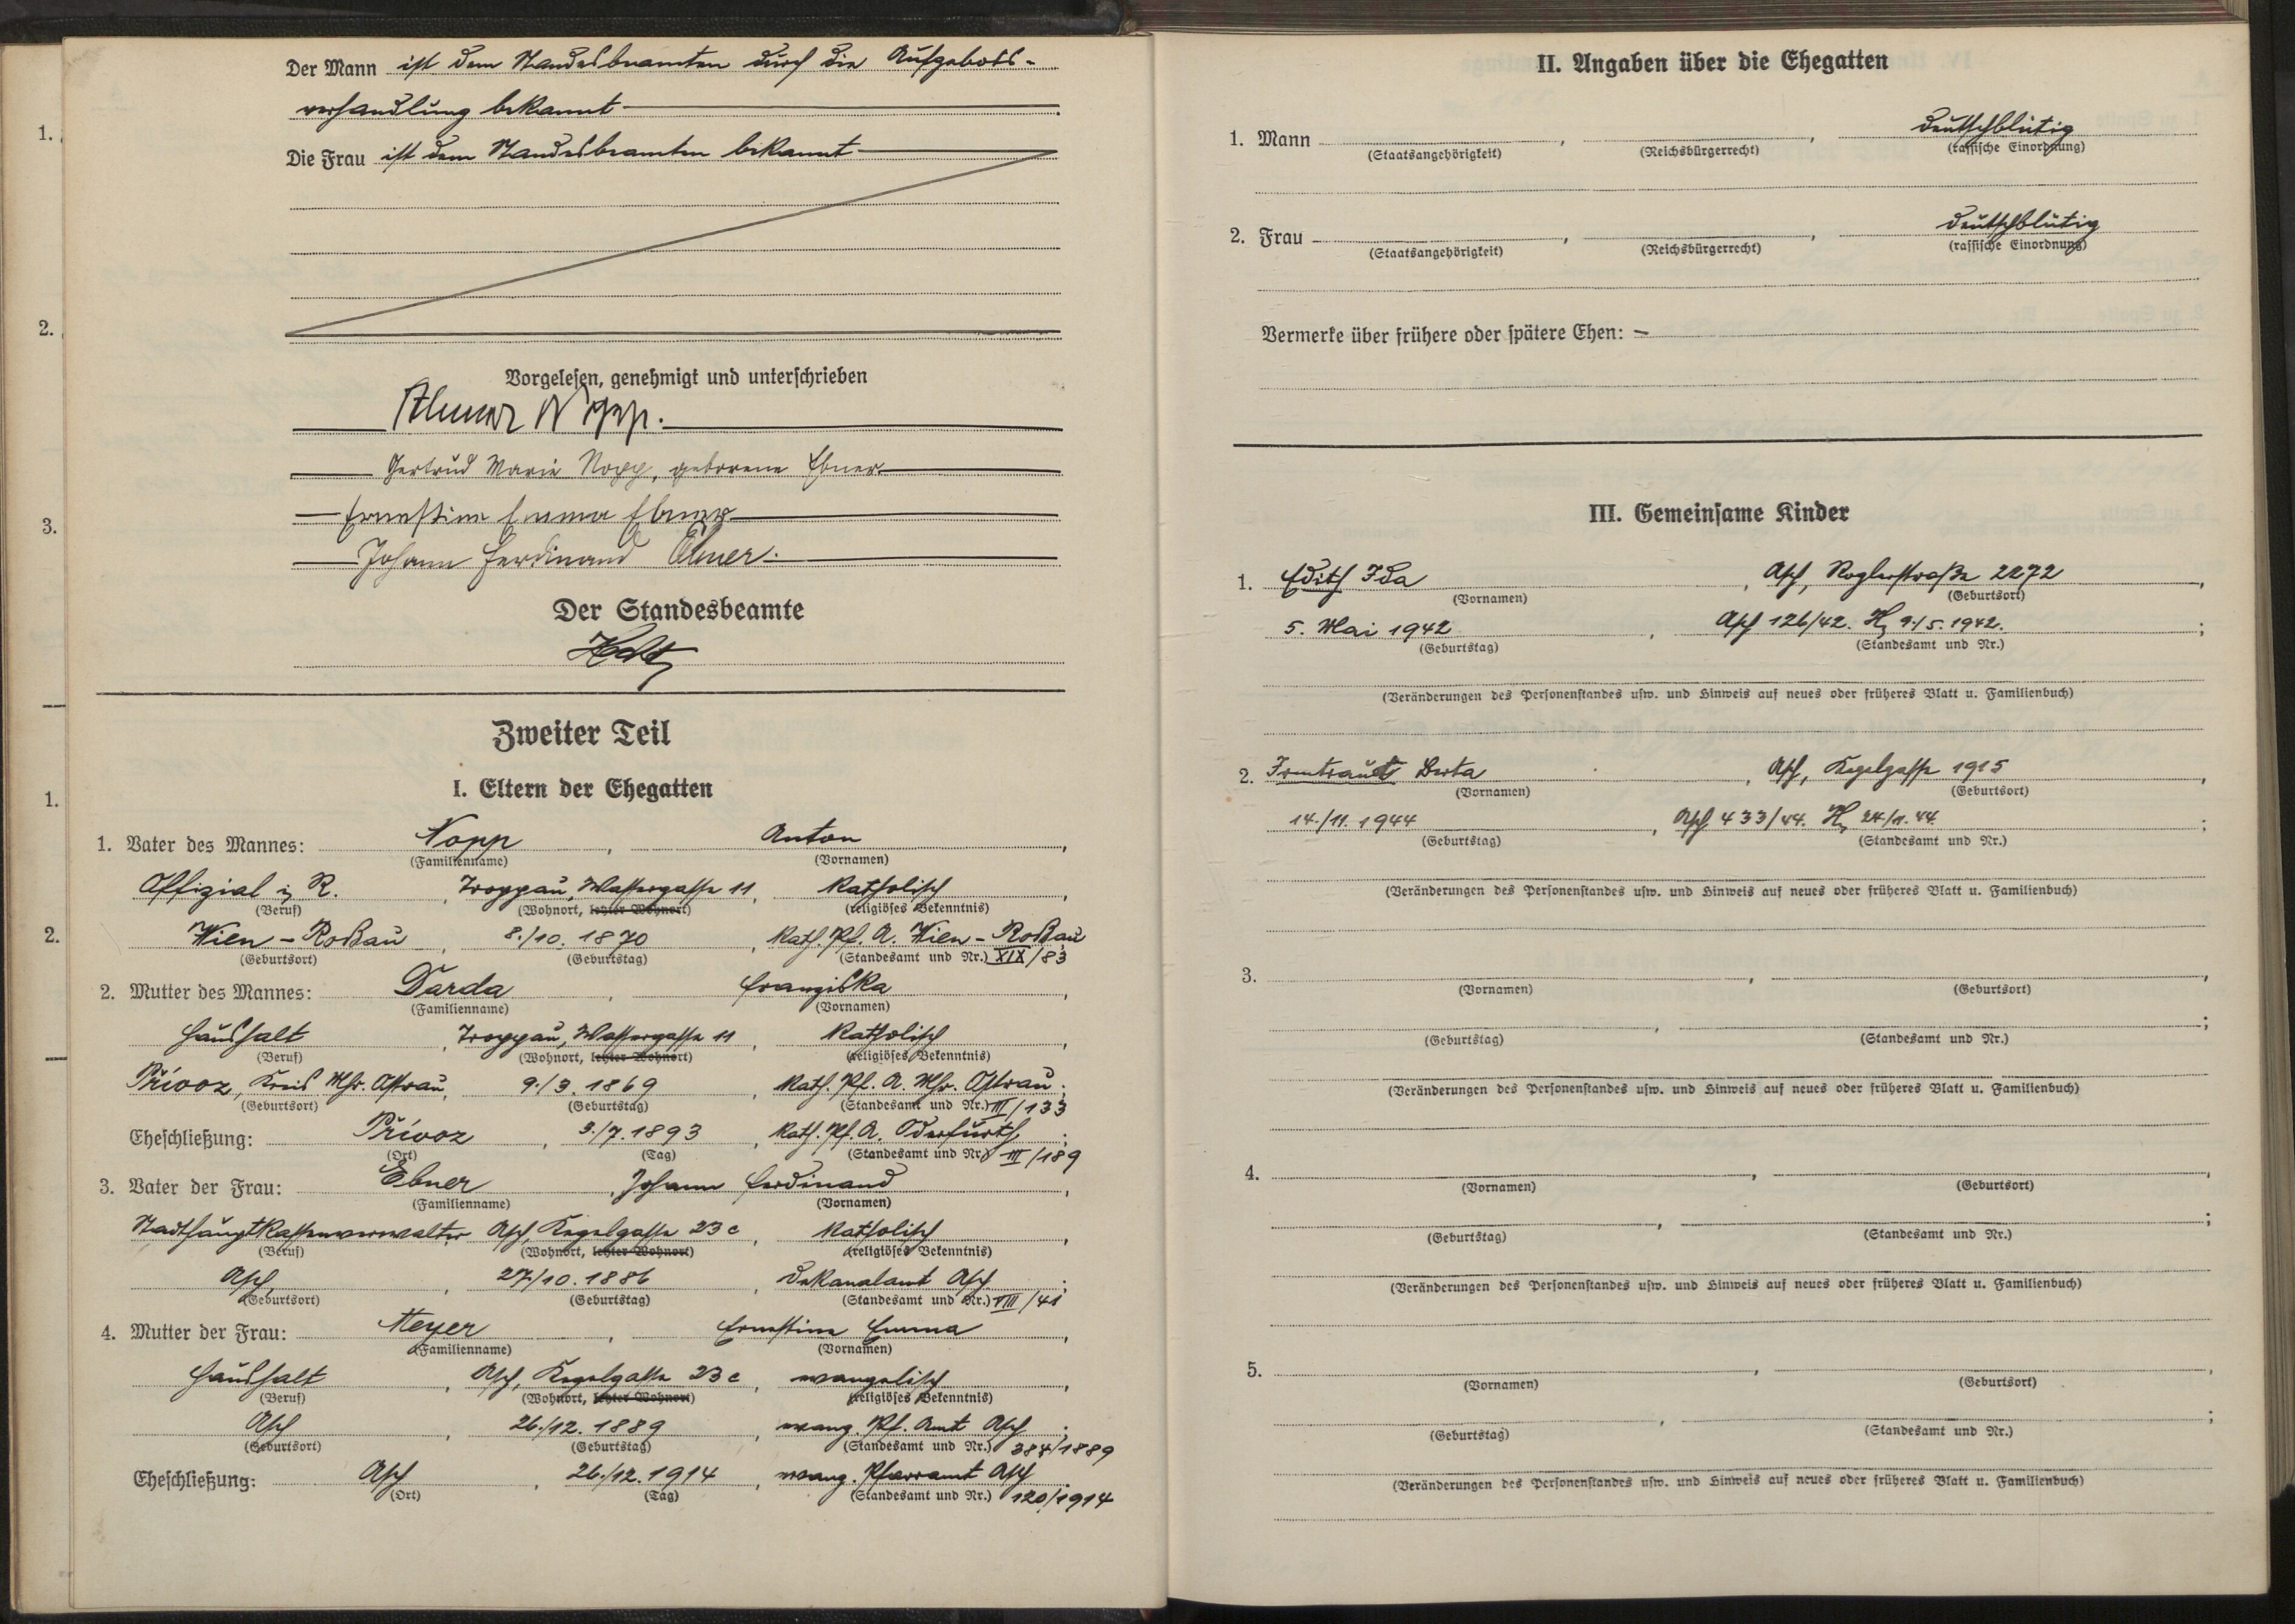 Der Mann ist dem Standesbeamten durch die Aufgebots-
verhandlung bekannt
1.
Die Frau ist dem Standesbeamten bekannt
2.
Vorgelesen, genehmigt und unterschrieben
Nopp.
Gertrud Marie Nopp, geborene Ebner
3.
Ernestine Emma Ebner
Johann Ferdinand Ebner.
Der Standesbeamte
Zweiter Teil
I. Eltern der Ehegatten
1.
1. Vater des Mannes: Nopp, Anton,
(Familienname) (Vornamen)
Offizial i. R., Troppau, Wassergasse 11, katholisch,
(Beruf) (Wohnort, letzter Wohnort) (religiöses Bekenntnis)
2.
Wien - Roßau, 8./10. 1870, Kath. Pf. A. Wien - Roßau
(Geburtsort) (Geburtstag) (Standesamt und Nr.) XIX/83
2. Mutter des Mannes: Darda, Franziska,
(Familienname) (Vornamen)
Haushalt, Troppau, Wassergasse 11, katholisch,
(Beruf) (Wohnort, letzter Wohnort) (religiöses Bekenntnis)
Přívoz, Kreis Mhr. Ostrau, 9./3. 1869, Kath. Pf. A. Mhr. Ostrau;
(Geburtsort) (Geburtstag) (Standesamt und Nr.) III/133
Eheschließung: Přívoz, 3./7. 1893, Kath. Pf. A. Oderfurth;
(Ort) (Tag) (Standesamt und Nr.) III/189
3. Vater der Frau: Ebner, Johann Ferdinand,
(Familienname) (Vornamen)
Stadthauptkassenverwalter Asch, Kegelgasse 23 c, katholisch,
(Beruf) (Wohnort, letzter Wohnort) (religiöses Bekenntnis)
Asch, 27./10. 1886, Dekanalamt Asch;
(Geburtsort) (Geburtstag) (Standesamt und Nr.) VIII/41
4. Mutter der Frau: Meyer, Ernestine Emma,
(Familienname) (Vornamen)
Haushalt, Asch, Kegelgasse 23 c, evangelisch,
(Beruf) (Wohnort, letzter Wohnort) (religiöses Bekenntnis)
Asch, 26./12. 1889, evang. Pf. Amt Asch;
(Geburtsort) (Geburtstag) (Standesamt und Nr.) 384/1889
Eheschließung: Asch, 26./12. 1914, evang. Pfarramt Asch
(Ort) (Tag) (Standesamt und Nr.) 120/1914
II. Angaben über die Ehegatten
1. Mann , , deutschblütig
(Staatsangehörigkeit) (Reichsbürgerrecht) (rassische Einordnung)
2. Frau , , deutschblütig
(Staatsangehörigkeit) (Reichsbürgerrecht) (rassische Einordnung)
Vermerke über frühere oder spätere Ehen: –
III. Gemeinsame Kinder
1. Edith Ida, Asch, Roglerstraße 2272,
(Vornamen) (Geburtsort)
5. Mai 1942, Asch 126/42. H, 9./5. 1942.;
(Geburtstag) (Standesamt und Nr.)
(Veränderungen des Personenstandes usw. und Hinweis auf neues oder früheres Blatt u. Familienbuch)
2. Irmtraud Berta, Asch, Kegelgasse 1915,
(Vornamen) (Geburtsort)
14./11. 1944, Asch 433/44. H, 24/11. 44.;
(Geburtstag) (Standesamt und Nr.)
(Veränderungen des Personenstandes usw. und Hinweis auf neues oder früheres Blatt u. Familienbuch)
3. , ,
(Vornamen) (Geburtsort)
, ;
(Geburtstag) (Standesamt und Nr.)
(Veränderungen des Personenstandes usw. und Hinweis auf neues oder früheres Blatt u. Familienbuch)
4. , ,
(Vornamen) (Geburtsort)
, ;
(Geburtstag) (Standesamt und Nr.)
(Veränderungen des Personenstandes usw. und Hinweis auf neues oder früheres Blatt u. Familienbuch)
5. , ,
(Vornamen) (Geburtsort)
, ;
(Geburtstag) (Standesamt und Nr.)
(Veränderungen des Personenstandes usw. und Hinweis auf neues oder früheres Blatt u. Familienbuch)